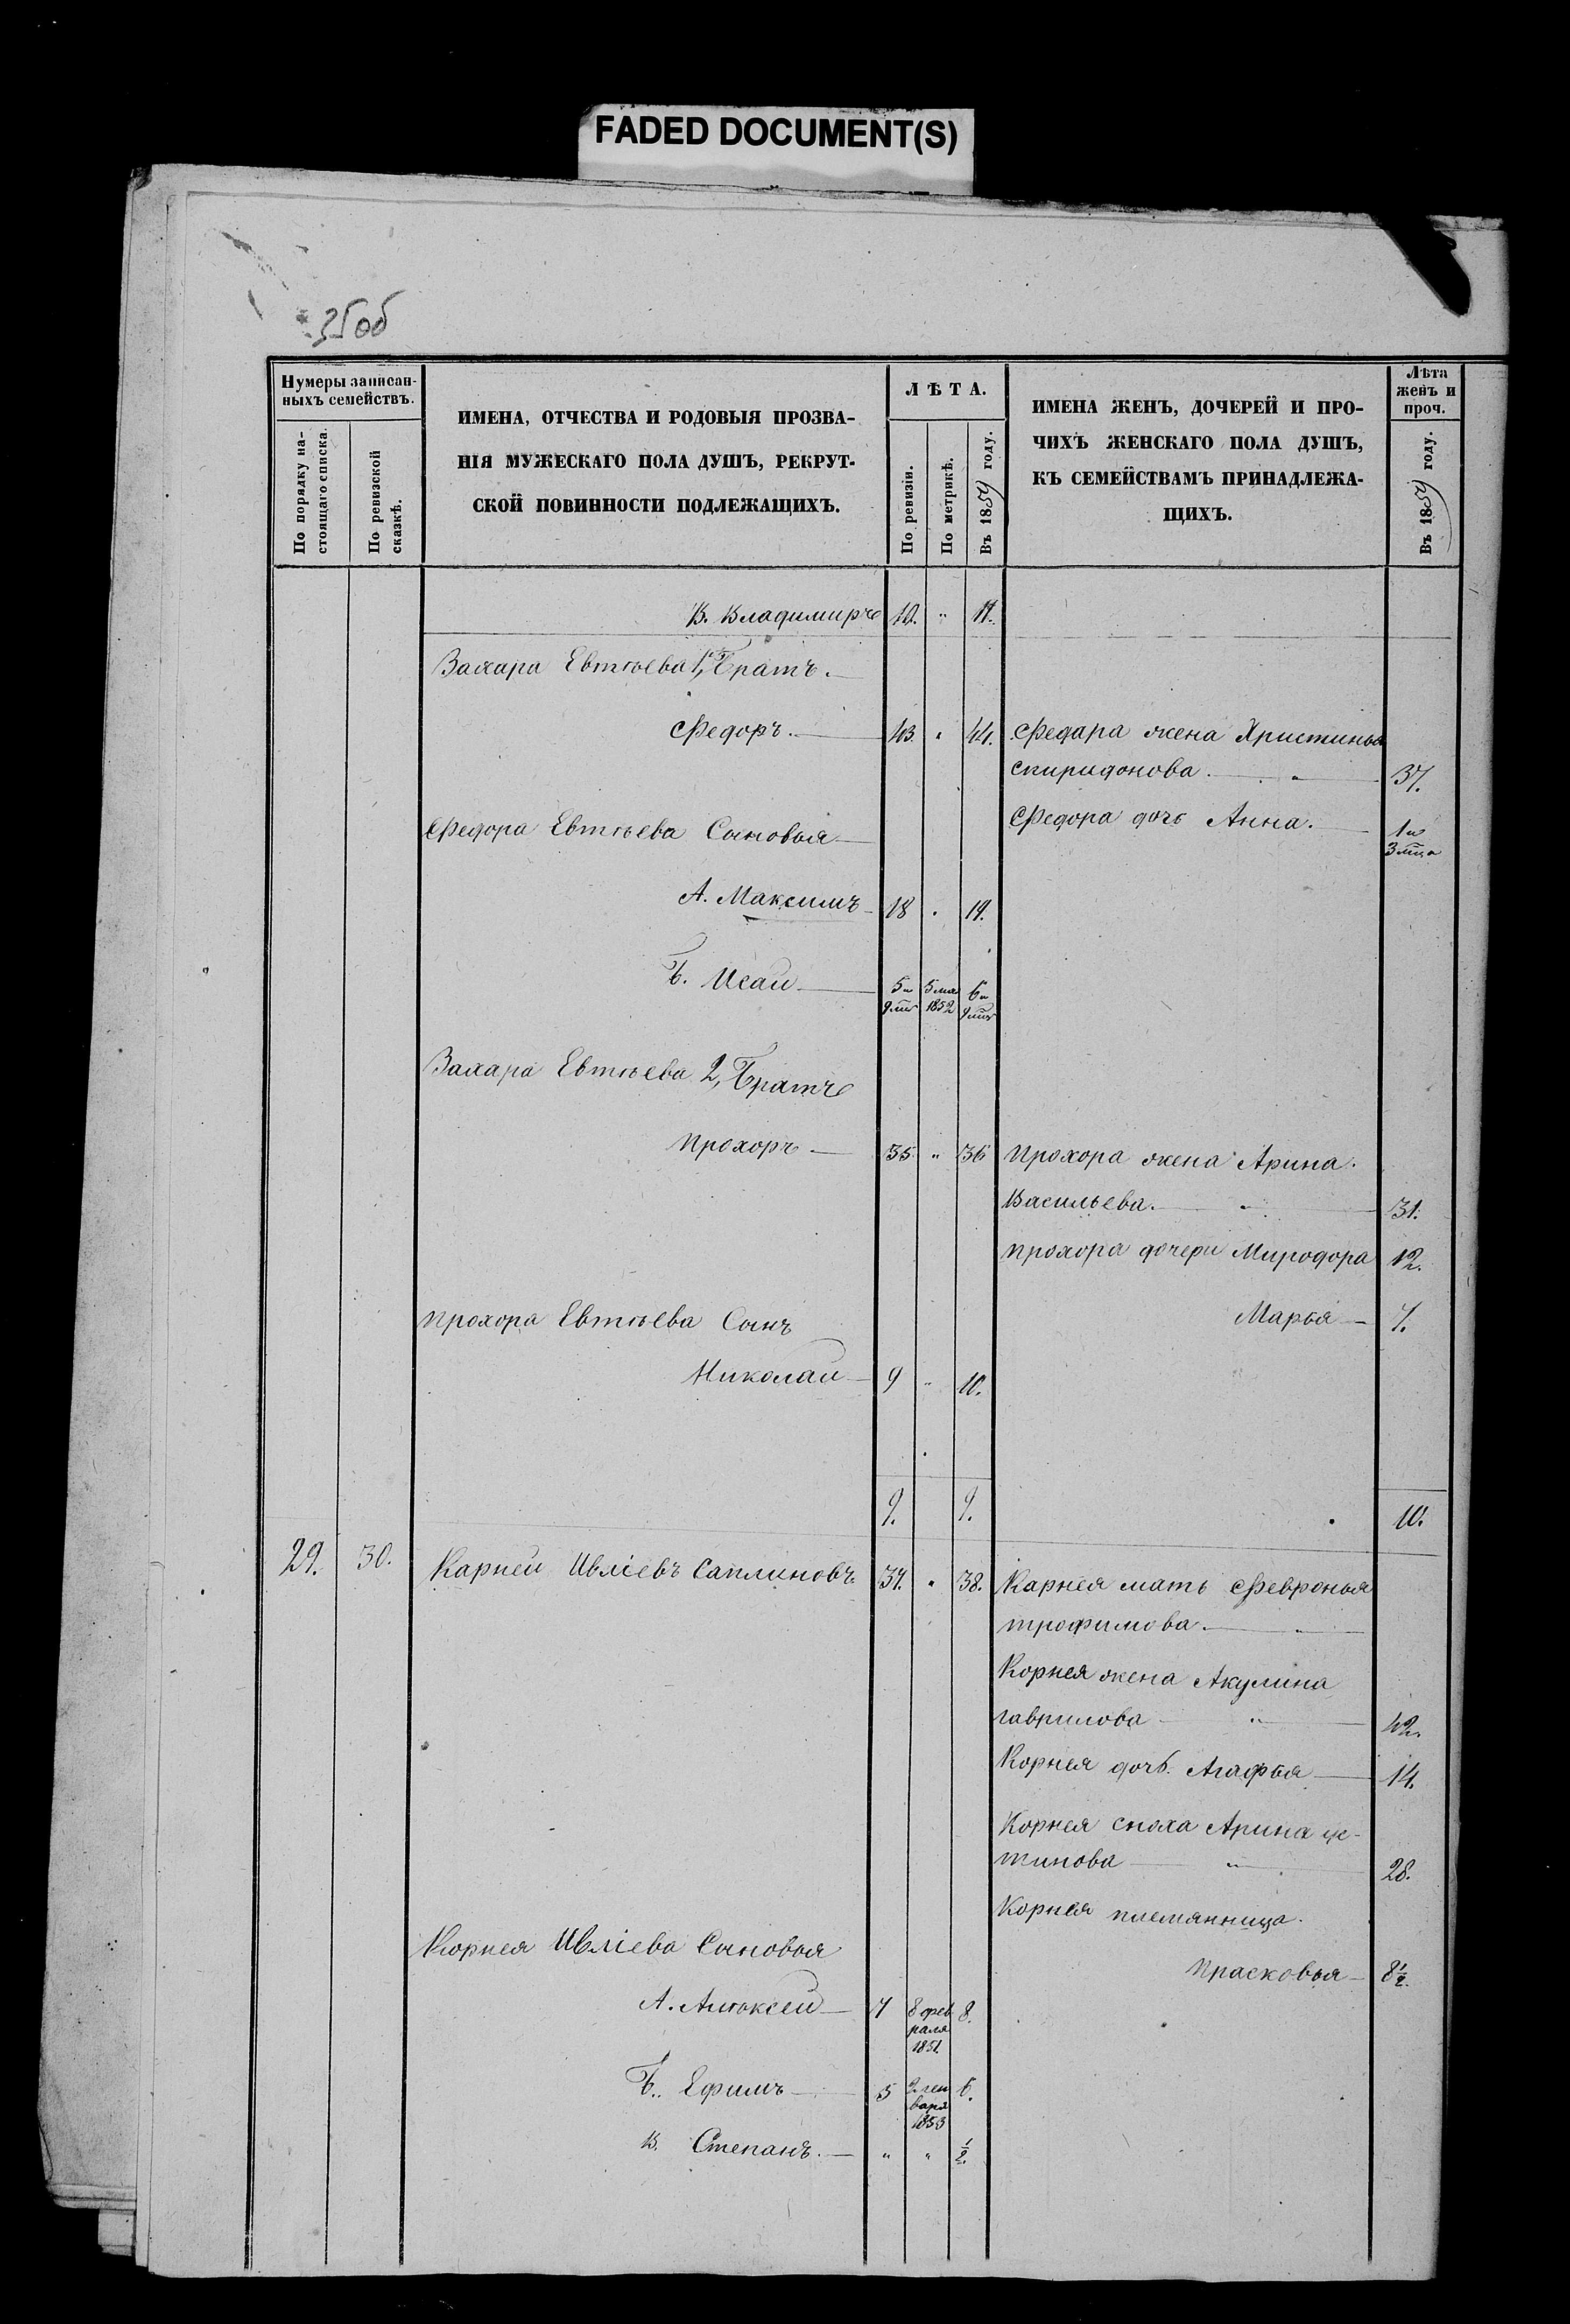 FADED DOCUMENT(S)
35об
Нумеры записан-
ныхъ семействъ.
По порядку на-
стоящаго списка.
По ревизской
сказкѣ.
ИМЕНА, ОТЧЕСТВА И РОДОВЫЯ ПРОЗВА-
НІЯ МУЖЕСКАГО ПОЛА ДУШЪ, РЕКРУТ-
СКОЙ ПОВИННОСТИ ПОДЛЕЖАЩИХЪ.
ЛѢТА.
По ревизіи.
По метрикѣ.
Въ 1859 году.
ИМЕНА ЖЕНЪ, ДОЧЕРЕЙ И ПРО-
ЧИХЪ ЖЕНСКАГО ПОЛА ДУШЪ,
КЪ СЕМЕЙСТВАМЪ ПРИНАДЛЕЖА-
ЩИХЪ.
Лѣта
женъ и
проч.
Въ 1859 году.
В. Владимиръ 10. " 11.
Захара Евтѣева 1, Братъ.
Федоръ. 43. " 44. Федара жена Христинья
спиридонова. " 37.
Федора дочь Анна. 1 и
3 мца
Федора Евтѣева Сыновья
А. Максимъ 18 " 19.
Б. Исаи 5 и 5 мая 6 и
9 мц 1852 9 мц
Захара Евтѣева 2, Братъ
Прохоръ 35. " 36 Прохора жена Арина.
Васильева. " 31.
прохора дочери Миродора 12.
Марья 7.
прохора Евтѣева Сынъ
Николаи 9 " 10.
9. 9. 10.
29. 30. Карнеи Ивліевъ Саплиновъ 37. " 38. Карнея мать Февронья
трофимова. "
Корнея жена Акулина
гаврилова " 42.
Корнея дочь. Агафья 14.
Корнея сноха Арина ус-
тинова " 28.
Корнея племянница.
Прасковья 8 1/2.
Корнея Ивліева Сыновья
А. Алѣксеи 7 8 фев 8.
раля
1851.
Б. Ефимъ 5 2 ген 6.
варя
1853
В. Степанъ. " " 1/2.